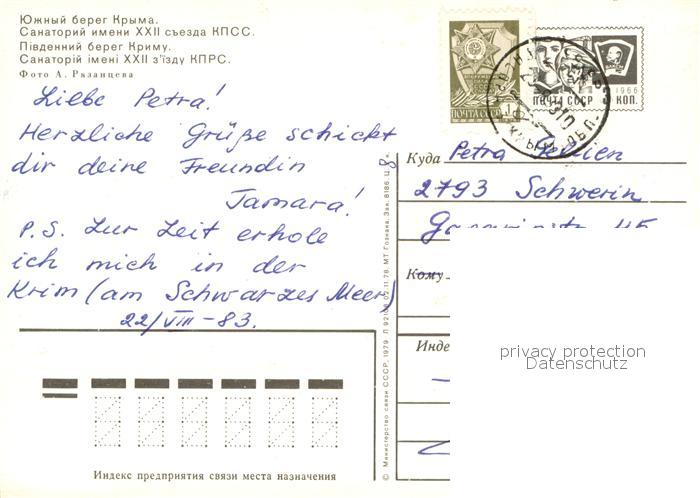 Южный берег Крыма.
Санаторий имени XXII съезда КПСС.
Південний берег Криму.
Санаторій імені XXII з'їзду КПРС.
Фото А. Рязанцева
Liebe Petra!
Herzliche Grüße schickt
dir deine Freundin
Tamara!
P.S. Zur Zeit erhole
ich mich in der
Krim (am Schwarzes Meer)
22/VIII-83.
Индекс предприятия связи места назначения
© Министерство связи СССР, 1979
МТ Гознака. Зак. 8186. Ц. 8 к.
ПОЧТА СССР 1 К
1966
ПОЧТА СССР КОП.
Куда Petra
2793 Schwerin
45
Кому
Инде
privacy protection
Datenschutz